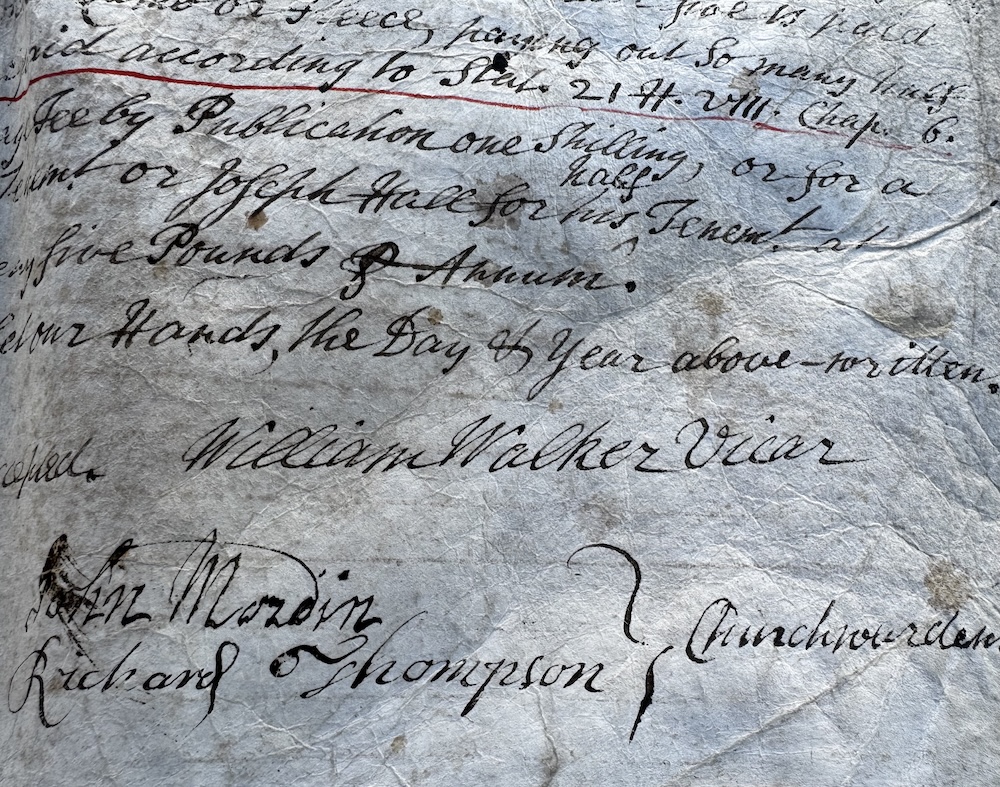 or Fleece, paying out so many half-
paid according to Stat. 21 H. VIII. Chap. 6.
Fee by Publication one Shilling, or for a
or Joseph Hall for his half Tenemt. at
five Pounds ⅌ Annum.
set our Hands, the Day & Year above-written.
William Walker Vicar
John Mordin
Richard Thompson } Churchwardens